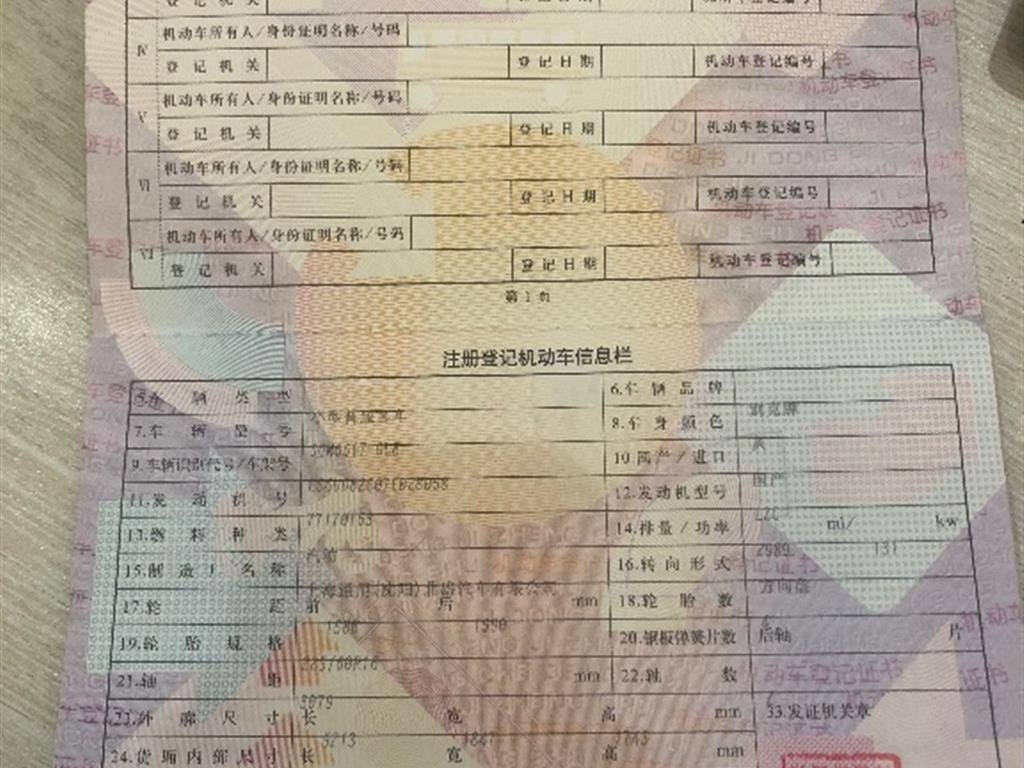 登 记 机 关
Ⅳ 机动车所有人/身份证明名称/号码
登 记 机 关 登 记 日 期 机动车登记编号
Ⅴ 机动车所有人/身份证明名称/号码
登 记 机 关 登 记 日 期 机动车登记编号
Ⅵ 机动车所有人/身份证明名称/号码
登 记 机 关 登 记 日 期 机动车登记编号
机动车所有人/身份证明名称/号码
登 记 机 关 登 记 日 期 机动车登记编号
第 1 页
注册登记机动车信息栏
5.车 辆 类 型 6.车 辆 品 牌
别克牌
7.车 辆 型 号 8.车 身 颜 色
灰
9.车辆识别代号/车架号 10.国产/进口
国产
11.发 动 机 号 12.发动机型号
77170153 LZC
13.燃 料 种 类 14.排量/功率 ml/ kw
汽油 2989 131
15.制 造 厂 名 称 16.转 向 形 式
上海通用(沈阳)北盛汽车有限公司 方向盘
17.轮 距 前 后 mm 18.轮 胎 数
1586 1590
19.轮 胎 规 格 20.钢板弹簧片数 后轴 片
21.轴 距 mm 22.轴 数
3079
23.外 廓 尺 寸 长 宽 高 mm 33.发证机关章
5213 1847
24.货 厢 内 部 尺 寸 长 宽 高 mm